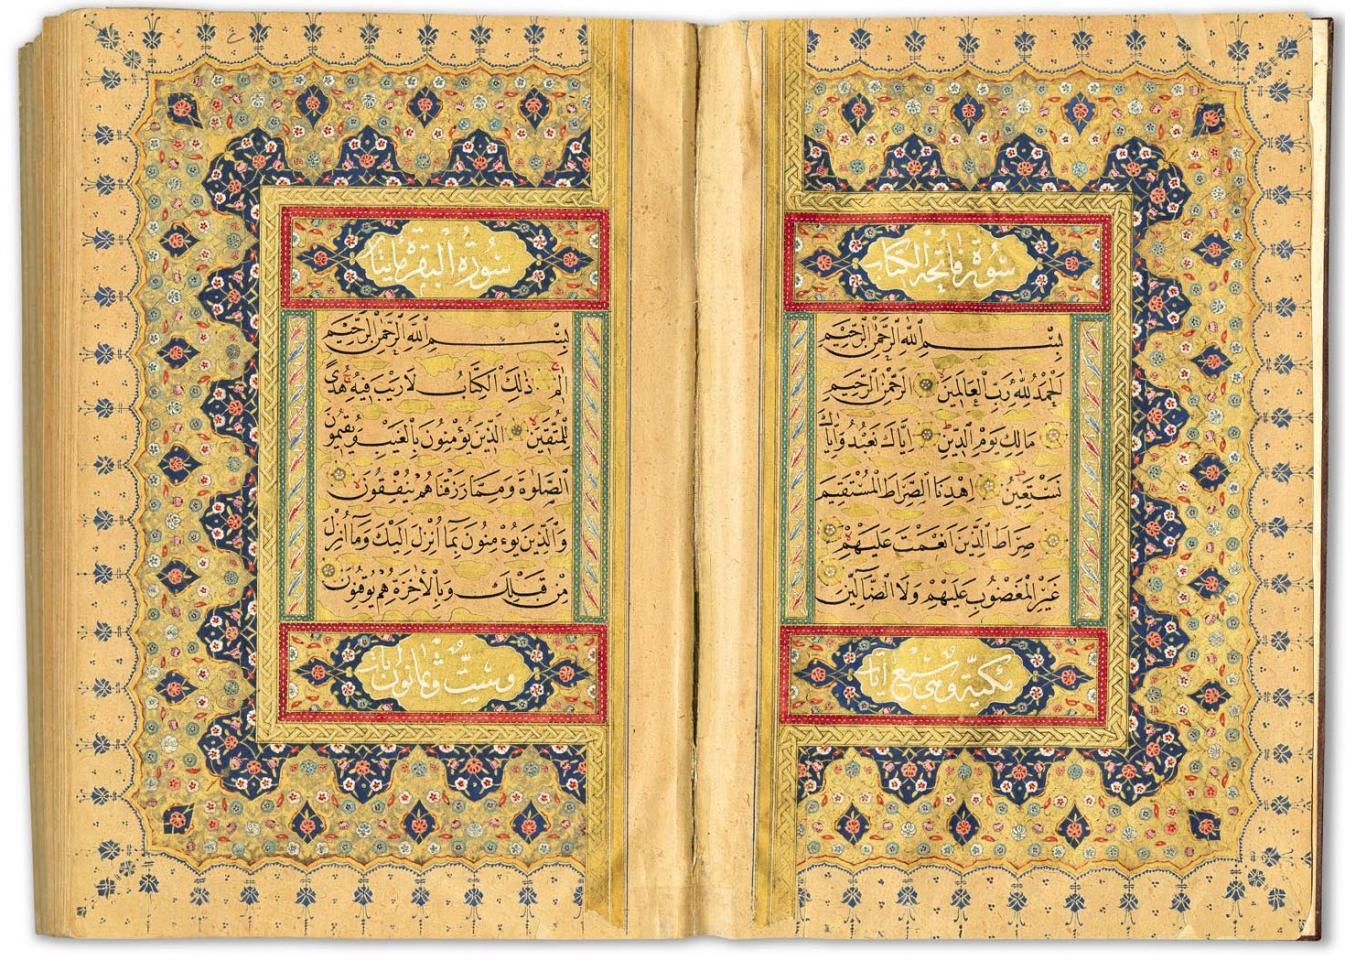 سورة فاتحة الكتاب
بِسْمِ اللّٰهِ الرَّحْمٰنِ الرَّحِيمِ
اَلْحَمْدُ لِلّٰهِ رَبِّ الْعَالَمِينَ الرَّحْمٰنِ الرَّحِيمِ
مَالِكِ يَوْمِ الدِّينِ اِيَّاكَ نَعْبُدُ وَاِيَّاكَ
نَسْتَعِينُ اِهْدِنَا الصِّرَاطَ الْمُسْتَقِيمَ
صِرَاطَ الَّذِينَ اَنْعَمْتَ عَلَيْهِمْ
غَيْرِ الْمَغْضُوبِ عَلَيْهِمْ وَلَا الضَّٓالِّينَ
مكية وهي سبع آيات
سورة البقرة مايتا
بِسْمِ اللّٰهِ الرَّحْمٰنِ الرَّحِيمِ
الٓمٓ ذٰلِكَ الْكِتَابُ لَا رَيْبَ فِيهِ هُدًى
لِلْمُتَّقِينَ اَلَّذِينَ يُؤْمِنُونَ بِالْغَيْبِ وَيُقِيمُونَ
الصَّلٰوةَ وَمِمَّا رَزَقْنَاهُمْ يُنْفِقُونَ
وَالَّذِينَ يُؤْمِنُونَ بِمَٓا اُنْزِلَ اِلَيْكَ وَمَٓا اُنْزِلَ
مِنْ قَبْلِكَ وَبِالْاٰخِرَةِ هُمْ يُوقِنُونَ
وست وثمانون آيات